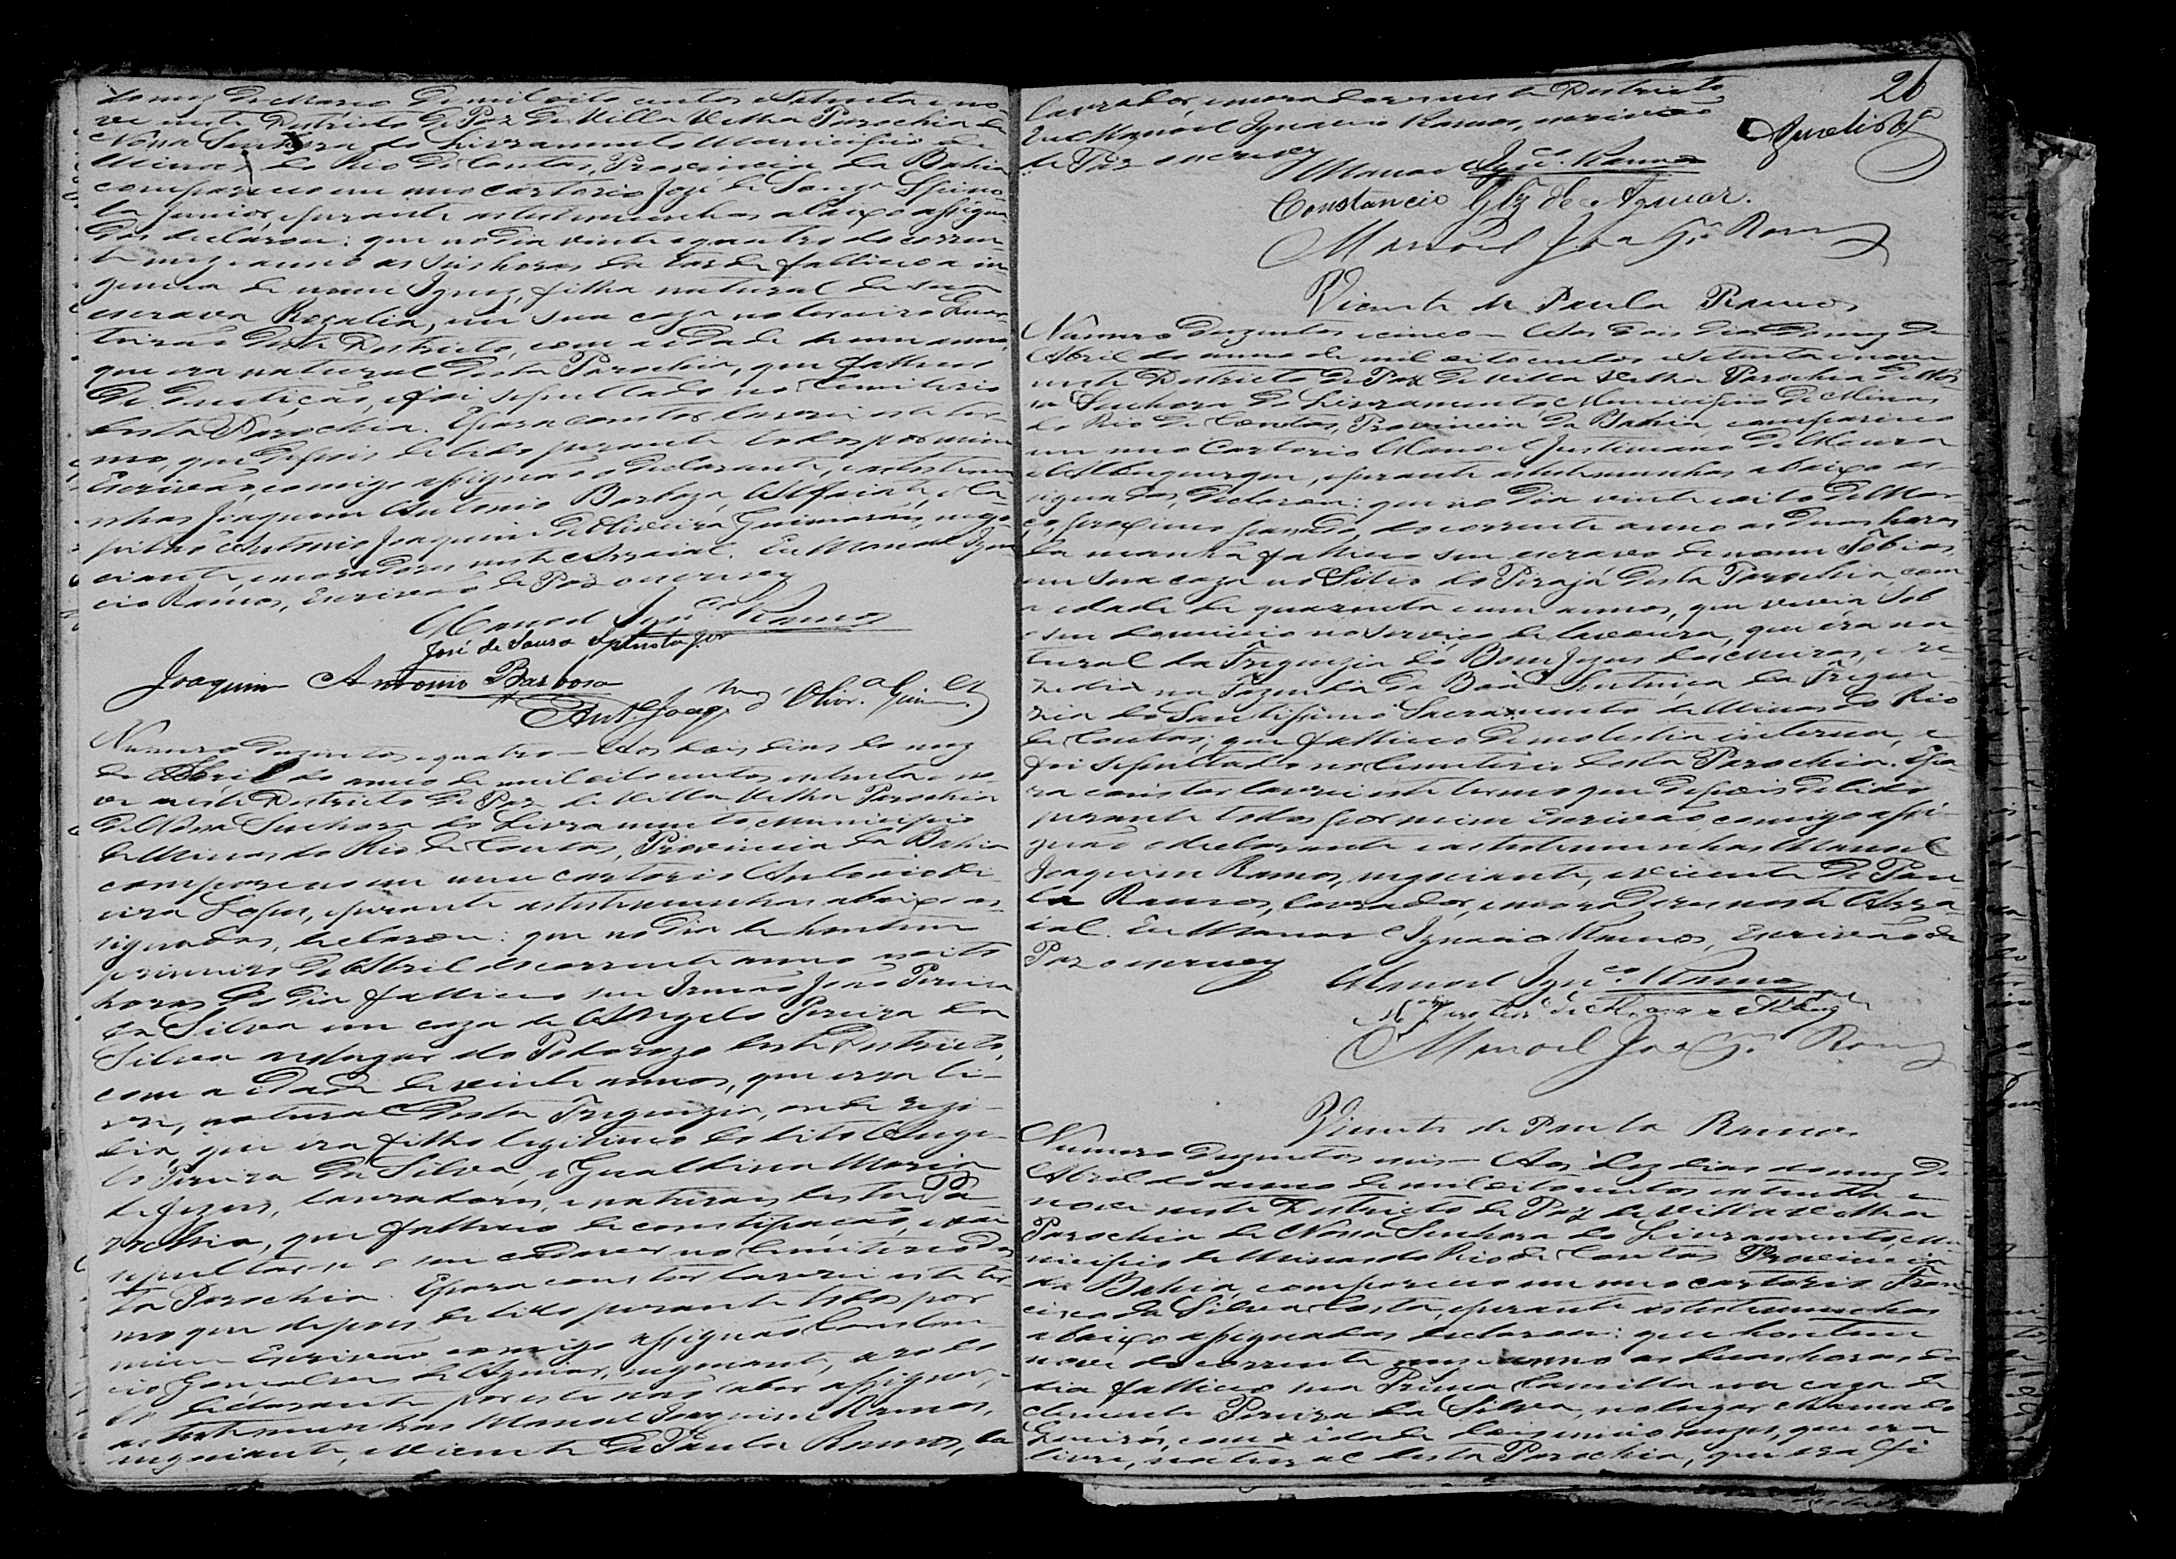 do mez de Março de mil oito centos e setenta e no-
ve neste Districto de Paz de Villa Velha Parochia de
Nossa Senhora do Livramento Municipio de
Minas do Rio de Contas, Provincia da Bahia
compareceo em meo cartorio José de Souza Spino-
la Junior, e perante as testemunhas abaixo assigna-
das declarou: que no dia vinte e quatro do corren-
te mez e anno as seis horas da tarde falleceo a in-
genua de nome Ignez, filha natural de sua
escrava Rozalia, em sua caza no terceiro Quar-
teirão deste Districto, com a idade de um anno,
que era natural desta Parochia, que falleceo
de dentição, e foi sepultado no Cemiterio
desta Parochia. E para constar lavrei este ter-
mo, que depois de lido perante todos por mim
Escrivão comigo assignão o declarante, e as testemu-
nhas Joaquim Antonio Barboza, Alfaiate, e Ca-
pitão Antonio Joaquim de Oliveira Guimarães, nego-
ciante, moradores neste Arraial. Eu Manoel Igna-
cio Ramos, Escrivão de Paz o escrevy
Manoel Ignco Ramos
José de Souza Spinola Jor
Joaquim Antonio Barbosa
Anto Joaqm d' Olivra Guimes
Numero duzentos e quatro — Aos dois dias do mez
de Abril do anno de mil oito centos e setenta e no-
ve neste Districto de Paz de Villa Velha Parochia
de Nossa Senhora do Livramento, Municipio
de Minas do Rio de Contas, Provincia da Bahia
compareceo em meu cartorio Antonio Vi-
eira Lopes, e perante as testemunhas abaixo as-
signadas, declarou: que no dia de hontem
primeiro de Abril do corrente anno as oito
horas do dia falleceo seu Irmão João Pereira
da Silva em caza de Angelo Pereira da
Silva no lugar do deste Districto,
com a idade de vinte annos, que era li-
vre, natural desta Freguezia, onde rezi-
dia, que era filho legitimo do dito Ange-
lo Pereira da Silva, e Gualdina Maria
de Jezus, lavradores, e naturaes desta Pa-
rochia, que falleceo de constipação, e vai
sepultar-se o seu cadaver no Cemiterio des-
ta Parochia. E para constar lavrei este ter-
mo que depois de lido perante todos por
mim Escrivão comigo assignão Constan-
cio Gonçalves de Aguiar, negociante, a rogo do
declarante por este não saber assignar, e
as testemunhas Manoel Joaquim Ramos,
negociante, e Vicente de Paula Ramos, la-
26
lavrador, moradores neste Districto
Eu Manoel Ignacio Ramos, escrivão
de Paz o escrevy
Manoel Ignco Ramos
Constancio Glz de Aguiar.
Manoel Joaqm Ramos
Vicente de Paula Ramos
Numero duzentos e cinco — Aos dois dias do mez de
Abril do anno de mil oito centos e setenta e nove
neste Districto de Paz de Villa Velha Parochia de Nos-
sa Senhora do Livramento Municipio de Minas
do Rio de Contas, Provincia da Bahia, compareceo
em meo Cartorio Manoel Justiniano de Moura
e Albuquerque, e perante as testemunhas abaixo as-
signadas, declarou: que no dia vinte e oito de Mar-
ço, proximo passado, do corrente anno as duas horas
da manhã falleceo seu escravo de nome Tobias,
em sua caza no Sitio do Pirajá desta Parochia, com
a idade de quarenta e um annos, que vivia sob
o seu dominio no serviço de lavoura, que era na-
tural da Freguezia do Bom Jezus dos Meiras, e re-
zidia na Fazenda da Bôa Sentença da Fregue-
zia do Santissimo Sacramento de Minas do Rio
de Contas; que falleceo de molestia interna, e
foi sepultado no Cemiterio desta Parochia. E pa-
ra constar lavrei este termo que depois de lido
perante todos por mim Escrivão, comigo assi-
gnão o declarante e as testemunhas Manoel
Joaquim Ramos, negociante, e Vicente de Pau-
la Ramos, lavrador, e moradores neste Arra-
ial. Eu Manoel Ignacio Ramos, Escrivão de
Paz o escrevy
Manoel Ignco Ramos
Manoel Joaqm Ramos
Vicente de Paula Ramos
Numero duzentos e seis — Aos dez dias do mez de
Abril do anno de mil oito centos e setenta e
nove neste Districto de Paz de Villa Velha
Parochia de Nossa Senhora do Livramento, Mu-
nicipio de Minas do Rio de Contas Provincia
da Bahia, compareceo em meo cartorio Fran-
cisco da Silva Costa, e perante as testemunhas
abaixo assignadas declarou: que hontem
nove do corrente mez e anno as duas horas do
dia falleceo sua Prima Camilla em caza de
Clemente Pereira da Silva, no lugar chamado
com a idade de dois mezes, que era
livre, natural desta Parochia, que era fi-